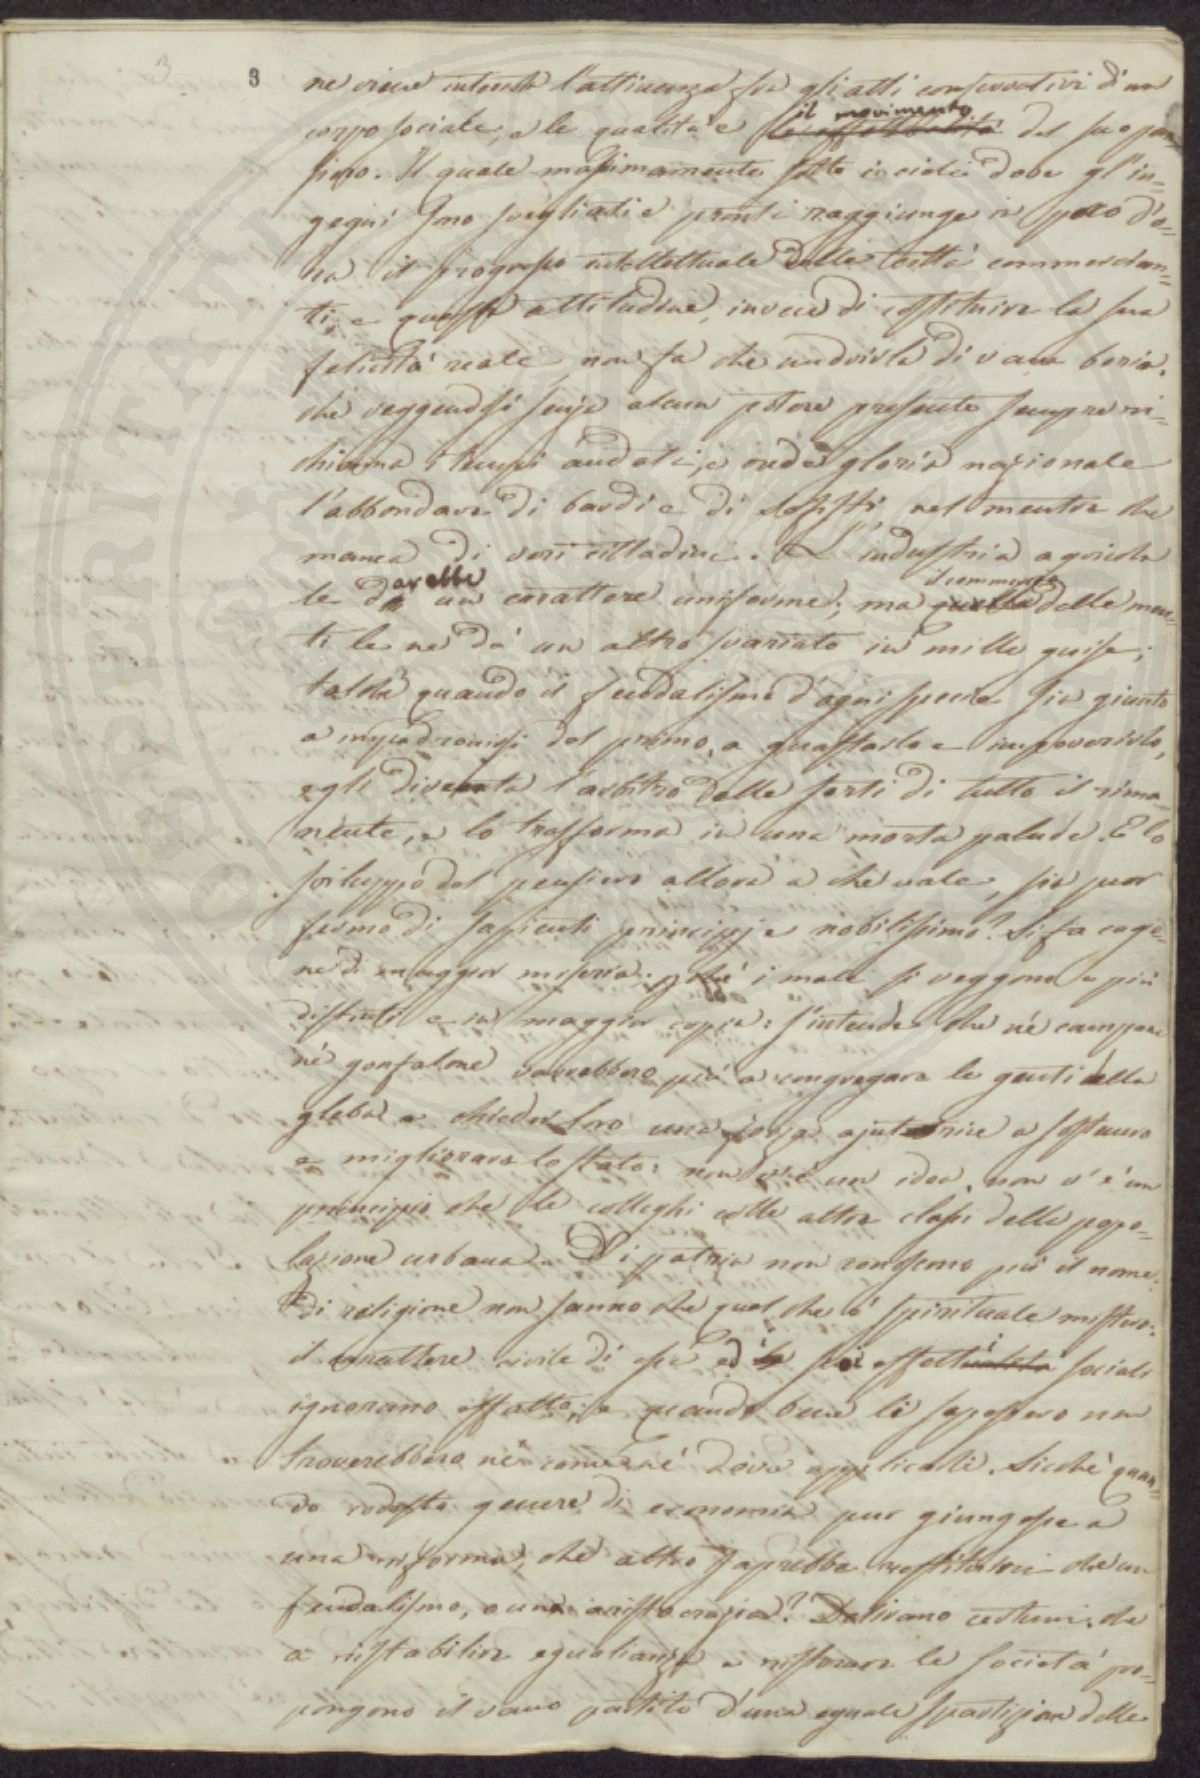 3 3
ne viene intensa l'attinenza fra gli atti conservativi d'un
il movimento
corpo sociale, e le qualità e del suo pen-
siero. Il quale massimamente sotto i cieli dove gl'in=
gegni sono svegliati e pronti raggiunge in poco d'o=
ra il progresso intellettuale delle città commercian=
ti, e questa attitudine, invece di costituire la sua
felicità reale non fa che nudrirla di vana boria,
che veggendosi senza alcun potere presente sempre ri=
chiama i tempi andati, e crede gloria nazionale
l'abbondare di bardi e di sofisti nel mentre che
manca di veri cittadini. L'industria agricola
il commercio
le darebbe un carattere uniforme; ma quello delle men=
ti le ne dà un altro svariato in mille guise;
talchè quando il feudalismo d'ogni specie sia giunto
a impadronirsi del primo, a guastarlo e impoverirlo,
egli diventa l'arbitro delle sorti di tutto il rima-
nente, e lo trasforma in una morta palude. E lo
sviluppo del pensiero allora a che vale, sia pur
fermo di sapienti principj e nobilissimo? Si fa cagio=
ne di maggior miseria; chè i mali si veggono e più
distinti e in maggior copia: s'intende che nè campane
nè gonfalone varrebbero più a congregare le genti della
gleba e chieder loro una forza ajutatrice a sostenere
e migliorare lo stato: non v'è un idea, non v'è un
principio che le colleghi colle altre classi della popo-
lazione urbana. Di patria non conoscono più il nome:
Di religione non sanno che quel che è spirituale mistero:
il carattere civile di essa ed i suoi effetti sociali
ignorano affatto; e quando bene li sapessero non
troverebbero nè come nè dove applicarli. Sicchè quan=
do codesto genere di economia pur giungesse a
una riforma, che altro saprebbe restituirci che un
feudalismo, o una aristocrazia? Delirano certuni che
a ristabilire eguaglianza e ristorare le società pro=
pongono il vano partito d'una eguale spartizione delle